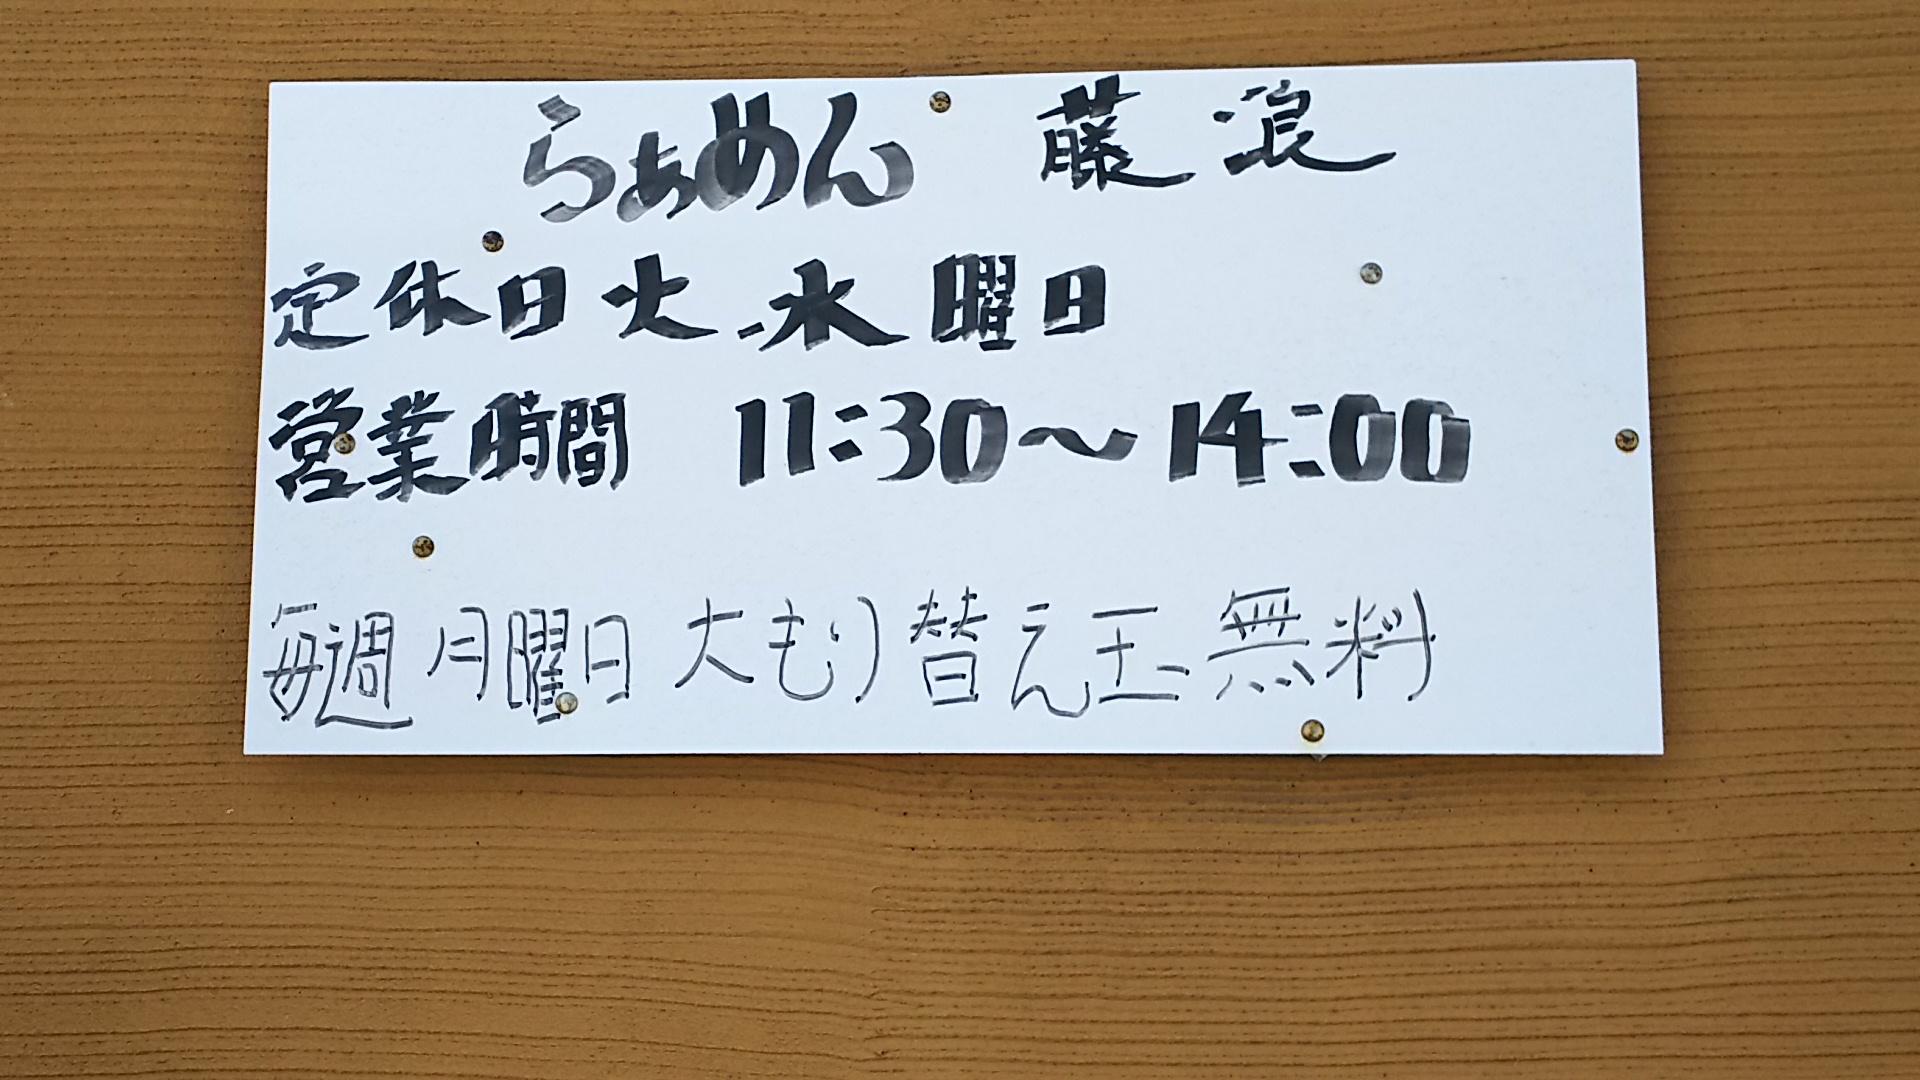 らぁめん 藤浪
定休日火、水曜日
営業時間 11:30～14:00
毎週月曜日 大もり替え玉無料